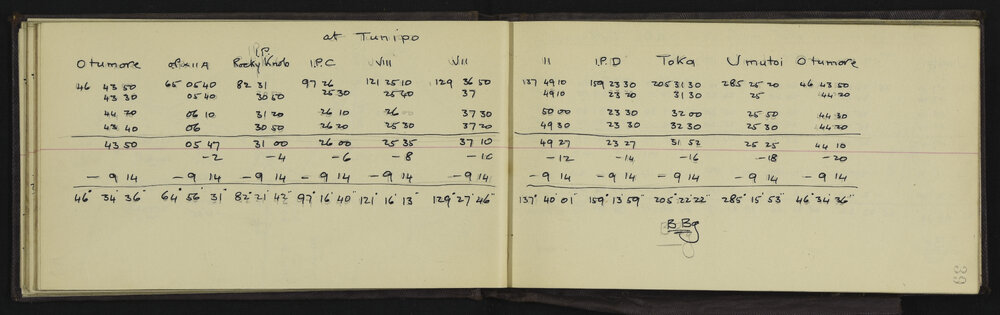 at Tunipo
I.P.
Otumore XIIA Rocky Knob I.P.C VIII VII II I.P.D Toka Umutoi Otumore
46 43 50 65 05 40 82 31 97 26 121 25 10 129 36 50 137 49 10 159 23 30 205 31 30 285 25 20 46 43 50
43 30 05 40 30 50 25 30 25 40 37 49 10 23 20 31 30 25 44 20
44 20 06 10 31 20 26 10 26 00 37 30 50 00 23 30 32 00 25 50 44 30
43 40 06 30 50 26 20 25 30 37 20 49 30 23 30 32 30 25 30 44 20
43 50 05 47 31 00 26 00 25 35 37 10 49 27 23 27 31 52 25 25 44 10
-2 -4 -6 -8 -10 -12 -14 -16 -18 -20
-9 14 -9 14 -9 14 -9 14 -9 14 -9 14 -9 14 -9 14 -9 14 -9 14 -9 14
46° 34' 36" 64° 56' 31" 82° 21' 42" 97° 16' 40" 121° 16' 13" 129° 27' 46" 137° 40' 01" 159° 13' 59" 205° 22' 22" 285° 15' 53" 46° 34' 36"
B Bg
39